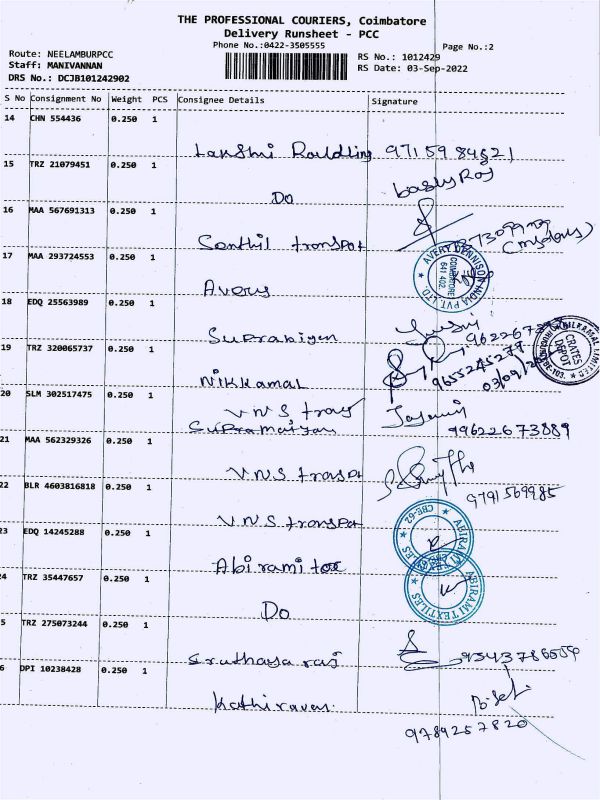 THE PROFESSIONAL COURIERS, Coimbatore
Delivery Runsheet - PCC
Phone No.:0422-3505555
Page No.:2
Route: NEELAMBURPCC
Staff: MANIVANNAN
DRS No.: DCJB101242902
RS No.: 1012429
RS Date: 03-Sep-2022
S No Consignment No Weight PCS Consignee Details Signature
14 CHN 554436 0.250 1
971 59 84821
15 TRZ 21079451 0.250 1
Do
16 MAA 567691313 0.250 1
Senthil transpot
17 MAA 293724553 0.250 1
AVERY DENNISON INDIA PVT. LTD.
COIMBATORE
641 402.
Avery
18 EDQ 25563989 0.250 1
19 TRZ 320065737 0.250 1
9655245279
CRATES
DEPOT
Nikkamal
20 SLM 302517475 0.250 1
VNS
99622673889
21 MAA 562329326 0.250 1
VNS transpot
9791569985
22 BLR 4603816818 0.250 1
VNS transpot
23 EDQ 14245288 0.250 1
ABIRAMI TEXTILES
CBE-62
Abirami tex
24 TRZ 35447657 0.250 1
ABIRAMI TEXTILES
Do
5 TRZ 275073244 0.250 1
6 DPI 10238428 0.250 1
Kathiravan
9789257820